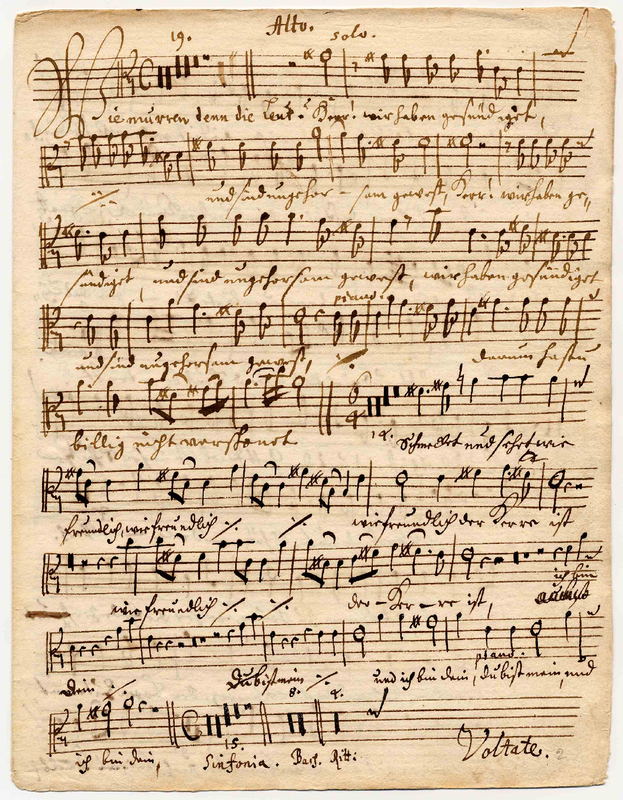 Alto.
19. solo.
Wie murren denn die Leut. Herr! wir haben gesündiget,
und sind ungehor - sam gewest, Herr! wir haben ge,,
sündiget, und sind ungehorsam gewest, wir haben gesündiget
piano:
und sind ungehorsam gewest, darum hastu
billig nicht verschonet 12. Schmecket und sehet wie
freundlich, wie freundlich wie freundlich der Herre ist
wie freundlich der - Her - re ist, ich bin
dein Du bist mein und ich bin dein, du bist mein, und
piano:
ich bin dein, 15. Sinfonia. 8. Bass. 4. Ritt: Voltate.